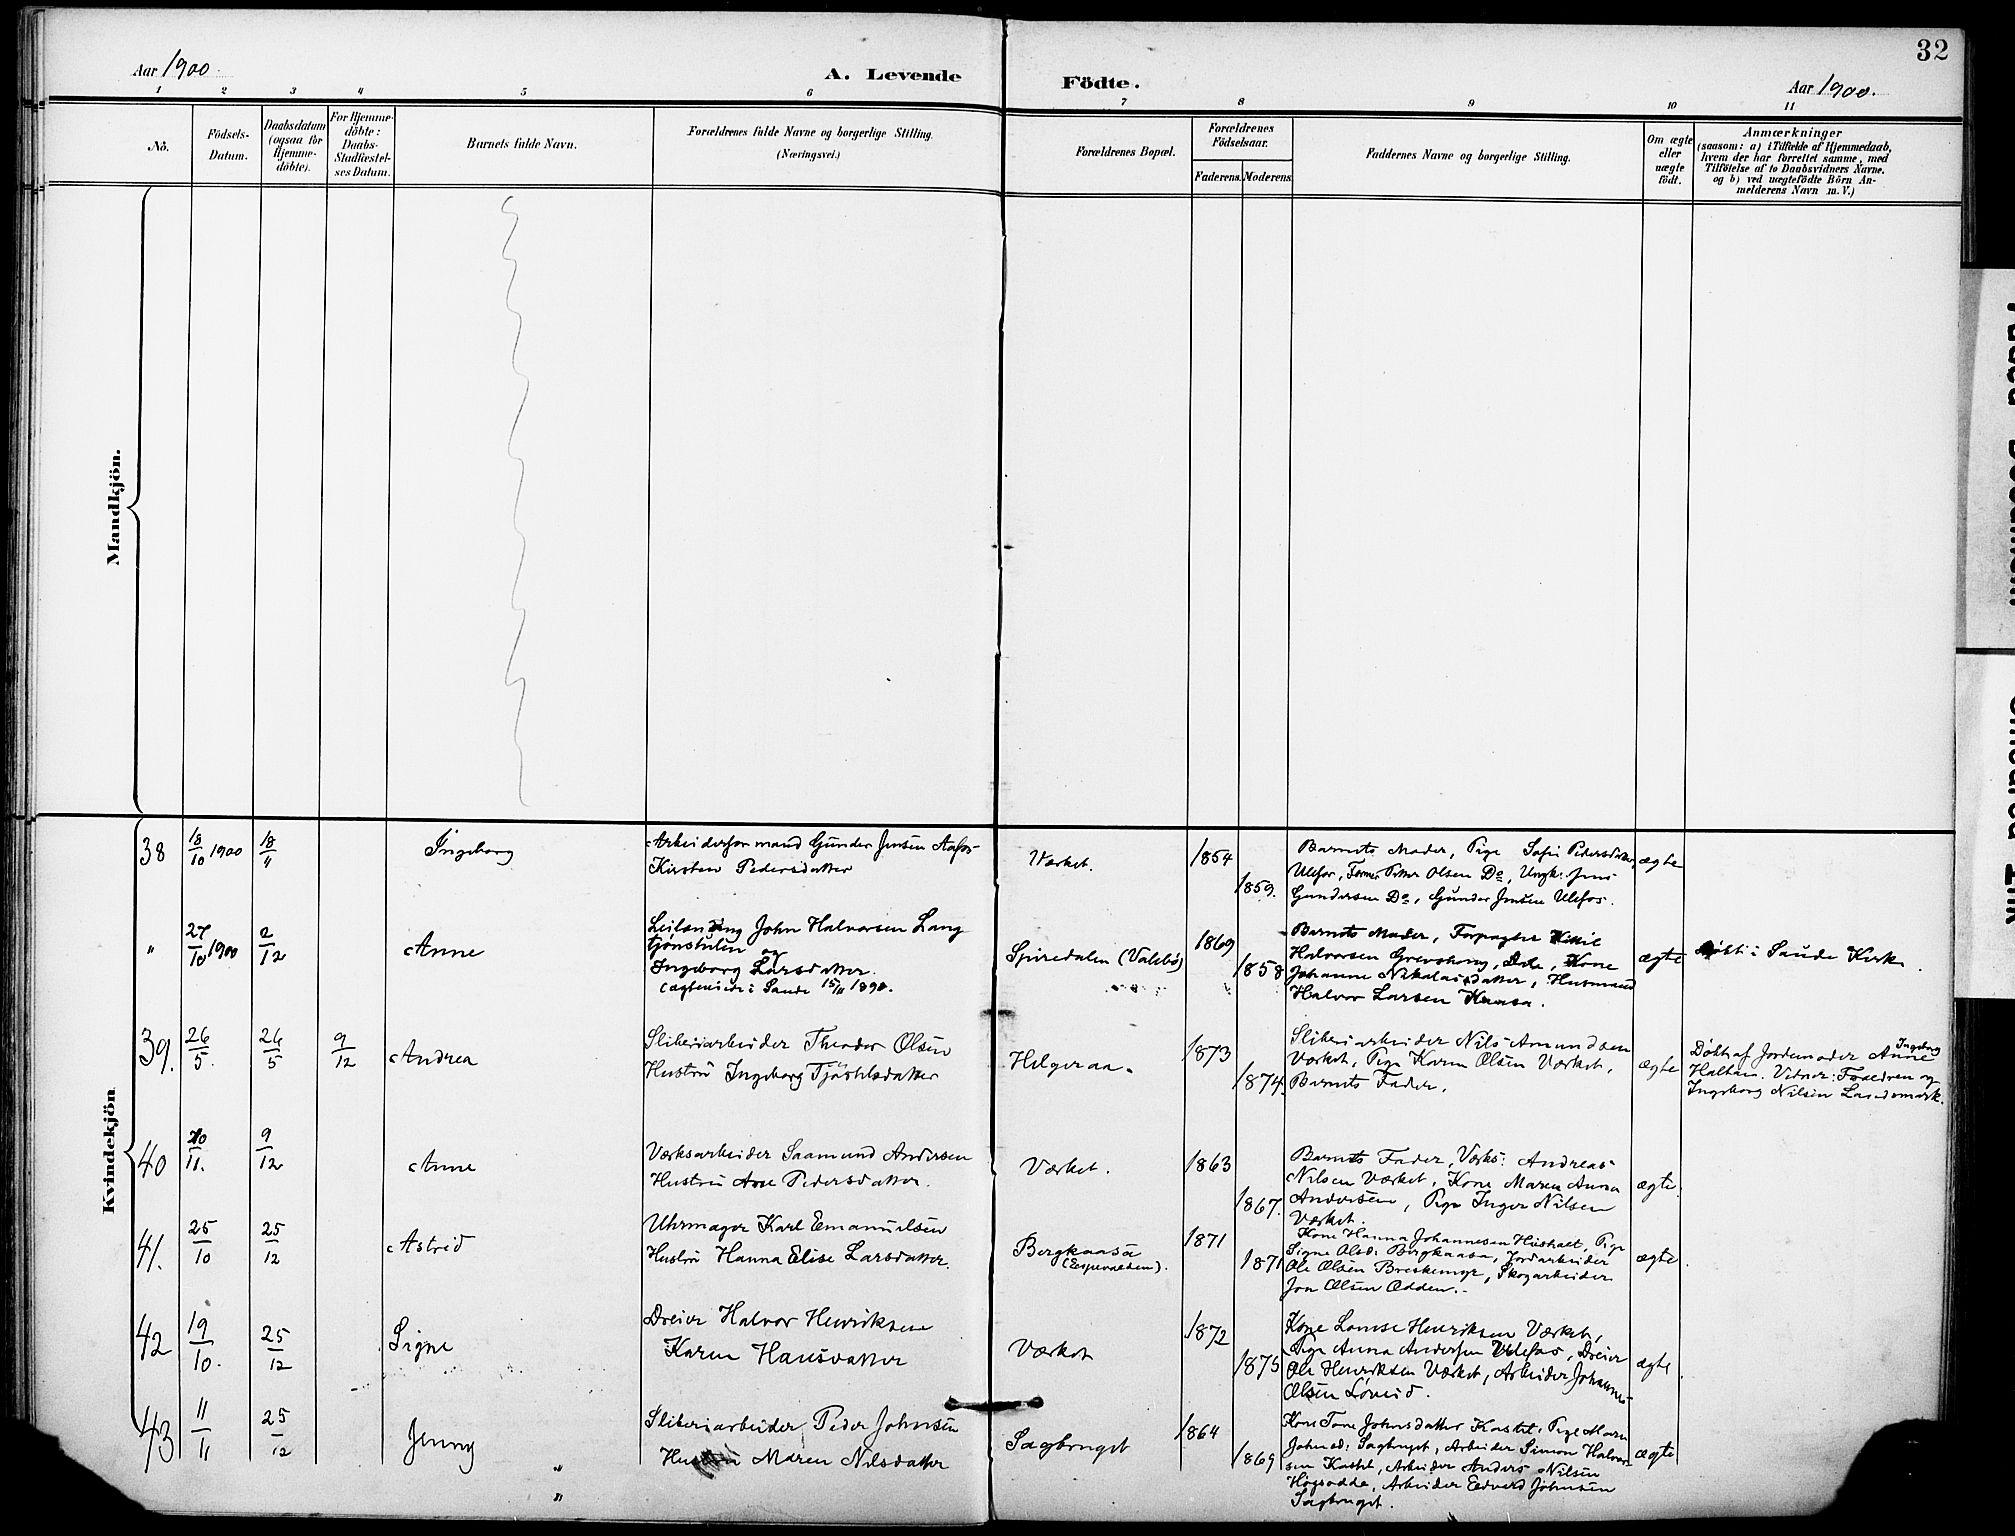 Aar 1900.
A. Levende Födte.
Aar 1900.
32
1 2 3 4 5 6 7 8 9 10 11
Nô.
Födsels-Datum.
Daabsdatum (ogsaa för Hjemme-döbte).
For Hjemme-döbte: Daabs-Stadfæstel-ses Datum.
Barnets fulde Navn.
Forældrenes fulde Navne og borgerlige Stilling. (Næringsvei.)
Forældrenes Bopæl.
Forældrenes Födselsaar.
Faderens. Moderens.
Faddernes Navne og borgerlige Stilling.
Om ægte eller uægte födt.
Anmærkninger
(saasom: a) i Tilfælde af Hjemmedaab,
hvem der har forrettet samme, med
Tilföielse af to Daabsvidners Navne.
og b) ved uægtefödte Börn An-
melderens Navn m. V.)
Mandkjön.
Kvindekjön
38 18/10 1900 18/11 Ingeborg
Arbeiderformand Gunder Jensen Aafos
Kirsten Pedersdatter
Værket.
1854
1859.
Barnets Moder, Pige Sofie Pedersdatter,
Ulefos, Peter Olsen Do, Ungk: Jens
Gundersen Do, Gunder Jensen Ulefos.
ægte
" 27/10 1900 2/12 Anne
John Halvorsen Lang
tjønstulen og
Ingeborg Larsdatter.
(ægteviede i Saude 15/11 1890.
Spiredalen (Valebø)
1869
1858
Barnets Moder, Forpagter
Halvorsen Grevskong, Do, Kone
Johanne Nikolaisdatter, Husmand
Halvor Larsen Kaasa.
ægte
Døbt i Saude Kirke.
39. 26/5. 26/5 9/12 Andrea
Sliberiarbeider Theodor Olsen
Hustru Ingeborg Tjøstelsdatter
Helgeraa.
1873
1874.
Sliberiarbeider Nils Amundsen
Værket, Pige Karen Olsen Værket,
Barnets Fader.
ægte
Døbt af Jordemoder Anne Ingeborg
Haltan. Vidner: Forældren og
Ingeborg Nilsen Landsmark.
40 20/11. 9/12 Anne
Værksarbeider Saamund Andersen
Hustru Ane Pedersdatter.
Værket.
1863
1867.
Barnets Fader, Værks: Andreas
Nilsen Værket, Kone Maren Anna
Andersen, Pige Inger Nilsen
Værket.
ægte.
41. 25/10 25/12 Astrid
Uhrmager Karl Emanuelsen
Hustru Hanna Elise Larsdatter.
Bergkaasa
(Espevolden).
1871
1871
Kone Hanna Johannesen Hushalt, Pige
Signe Olsd: Bergkaasa, Jordarbeider
Ole Olsen Breskemyr, Skogarbeider
Jon Olsen Odden.
ægte
42 19/10. 25/12 Signe
Dreier Halvor Henriksen
Karen Hansdatter
Værket
1872
1875
Kone Lovise Henriksen Værket,
Pige Anna Andersen Ulefos, Dreier
Ole Henriksen Værket, Arbeider Johannes
Olsen Lövid.
ægte
43 11/11 25/12 Jenny
Sliberiarbeider Peder Johnsen
Hustru Maren Nilsdatter
Sagbruget
1864
1869
Kone Tone Johnsdatter Kastet, Pige Maren
Johnsd: Sagbruget, Arbeider Simon Halvor-
sen Kastet, Arbeider Anders Nilsen
Høgsodde, Arbeider Edvard Johnsen
Sagbruget.
ægte